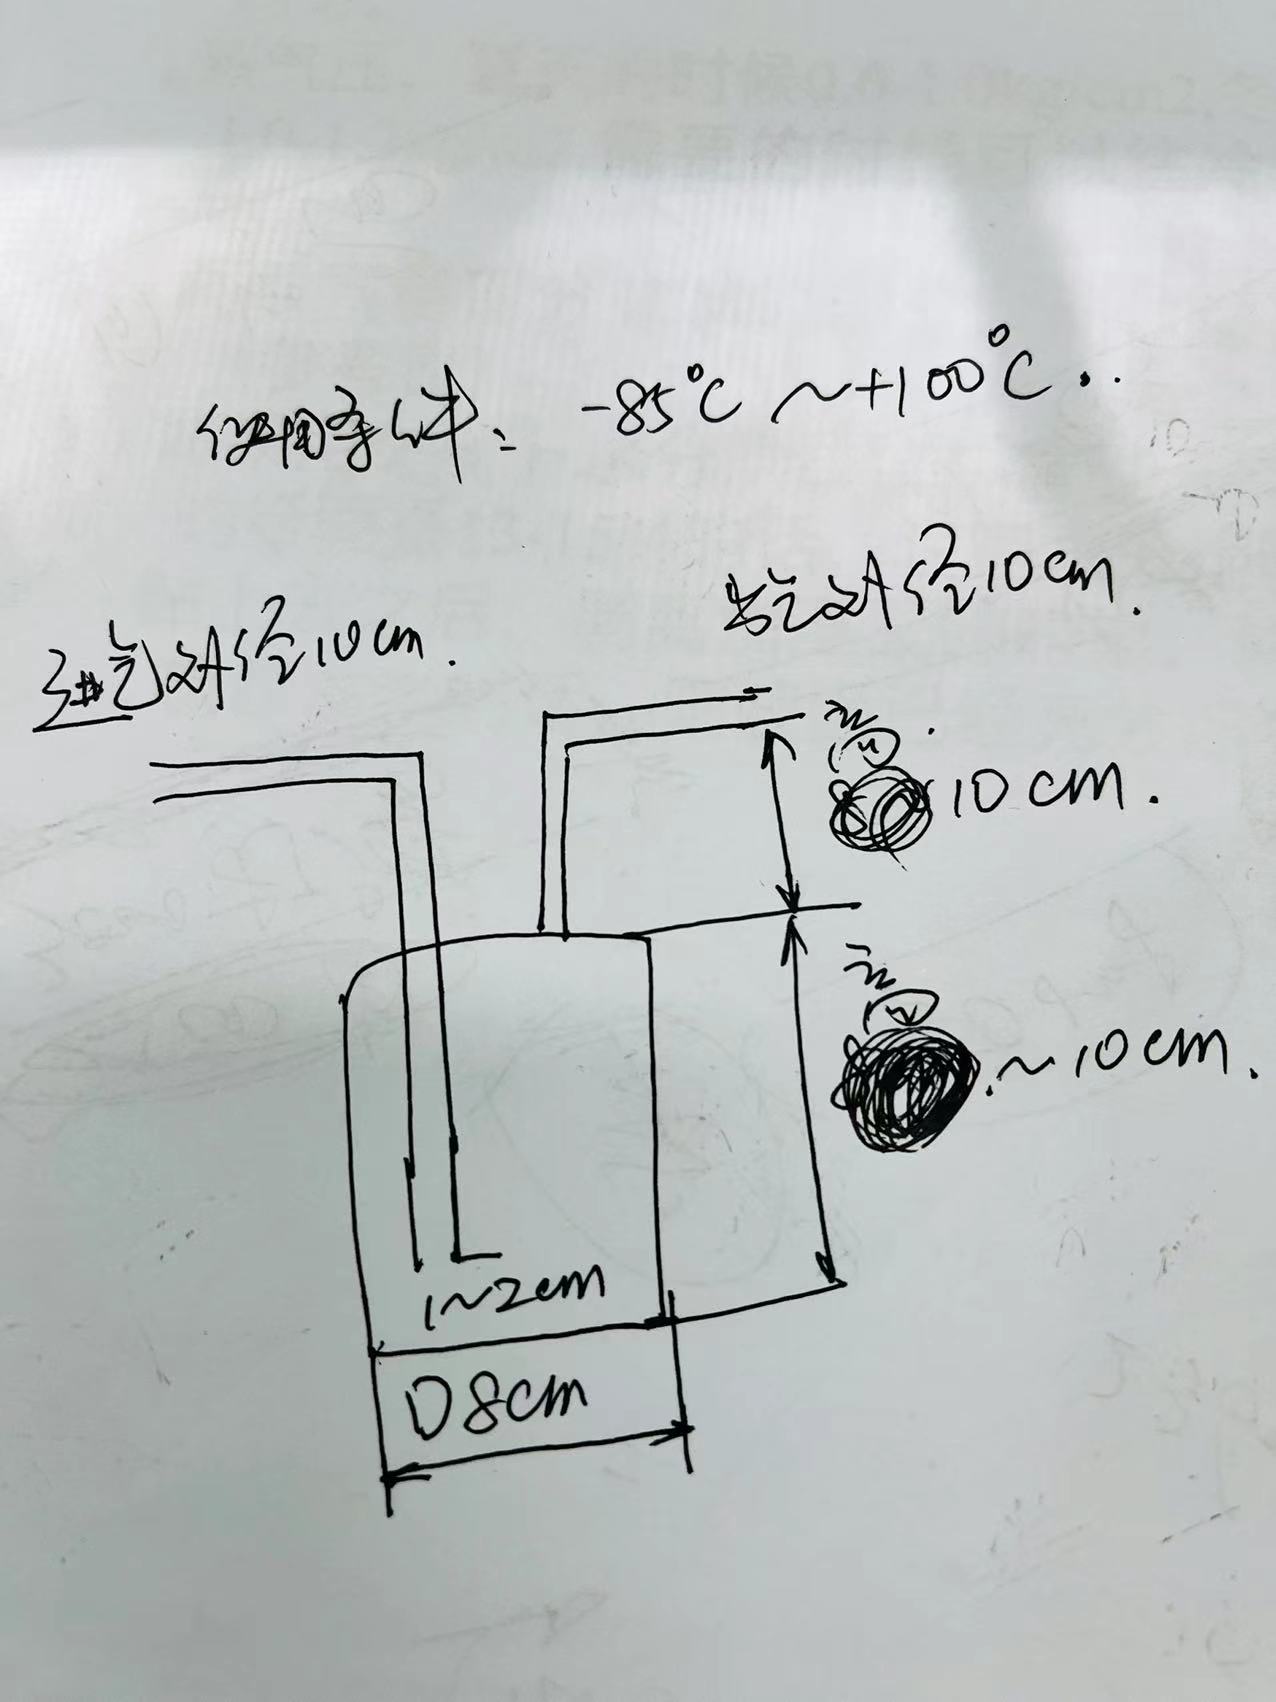 使用条件: -85°C ~+100°C..
出气对径10cm.
进气对径10cm.
10cm.
~10cm.
1~2cm
D8cm